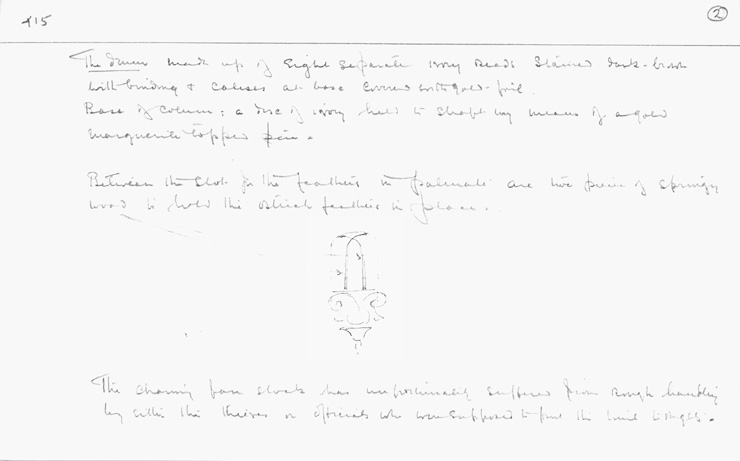 415
②
The stem made up of eight separate ivory beads stained dark-brown
with binding + calices at base covered with gold-foil.
Base of column: a disc of ivory held to shaft by means of a gold
marguerite topped pin.
Between the slots for the feathers in palmate are two pieces of springy
wood to hold the ostrich feathers in place.
The charming fan stock has unfortunately suffered from rough handling
by either the thieves or officials who were supposed to put the tomb to rights.